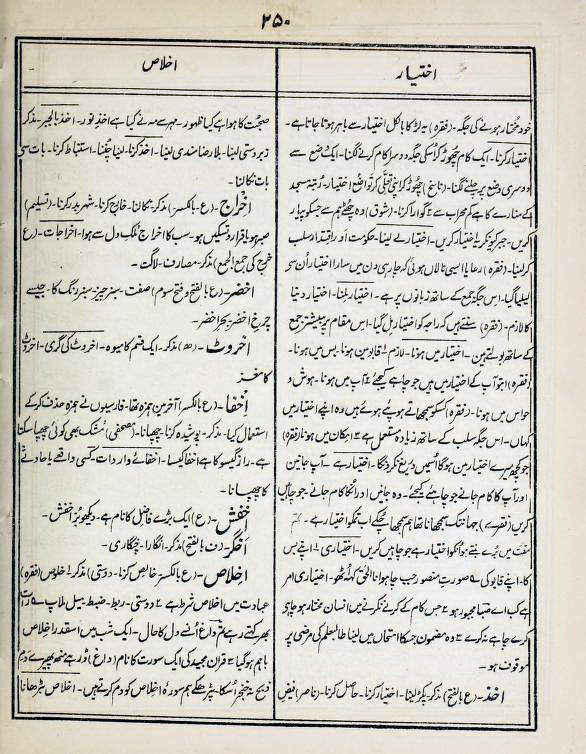 ۲۵۰
اختیار
اخلاص
خود مختار ہونے کی جگہ۔ (فقرہ) یہ لڑکا بالکل اختیار سے باہر ہوتا جاتا ہے۔
اختیار کرنا۔ ایک کام چھوڑ کر اُسکی جگہ دوسرا کام کرنے لگنا۔ ایک وضع سے
دوسری وضع پر چلنے لگنا۔ (ناسخ) چھوڑ کر اپنی تعلّی کر تواضع اختیار۔ رُتبۂ مسجد
کے منارے کا ہے کم محراب سے ۲۔ گوارا کرنا۔ (شوق) وہ چھٹے ہم سے جسکو پیار
کریں۔ جبر کیونکر یہ اختیار کریں۔ اختیار لے لینا۔ حکومت اور اقتدار سلب
کر لینا۔ (فقرہ) رعایا ایسی نالاں ہوئی کہ چار ہی دن میں سارا اختیار اُن سے
لیلیا گیا۔ اس جگہ جمع کے ساتھ زبانوں پر ہے۔ اختیار ملنا۔ اختیار دینا
کا لازم۔ (فقرہ) سنتے ہیں کہ راجہ کو اختیار مل گیا۔ اس مقام پر بیشتر جمع
کے ساتھ بولتے ہین۔ اختیار میں ہونا۔ لازم ۱۔ قابو میں ہونا۔ بس میں ہونا۔
(فقرہ) اب تو آپ کے اختیار میں ہیں جو چاہے کیجئے ۲۔ آپ میں ہونا۔ ہوش و
حواس میں ہونا۔ (فقرہ) کسکو سمجھاتے ہو پیئے ہوئے ہیں وہ اپنے اختیار میں
کہاں۔ اس جگہ سلب کے ساتھ زیادہ مستعمل ہے ۳۔ امکان میں ہونا (فقرہ)
جو کچھ میرے اختیار مین ہوگا اُسمیں دریغ نکرونگا۔ اختیار ہے۔ آپ جانین
اور آپ کا کام جانے جو چاہئے کیجئے۔ وہ جانیں اور انکا کام جانے۔ جو چاہیں
کریں (فقرے) جہانتک سمجھانا تھا ہم سمجھا چکے اب تمکو اختیار ہے۔
مفت میں بُرے بنتے ہو اُنکو اختیار ہے جو چاہیں کریں۔ اختیاری ۱۔ اپنے بس
کا۔ اپنے قابو کی ے صورتِ منصور جب چاہو انا الحق کہہ اُٹھو۔ اختیاری امر
ہے کب اے صبا مجبور ہو ۲۔ جس کام کے کرنے نکرنے میں انسان مختار ہو چاہو
کرے چاہے نہ کرے ۳۔ وہ مضمون جسکا امتحاں میں لینا طالبعلم کی مرضی پر
موقوف ہو۔
اخذ۔ (ع بالفتح) مذکر۔ پکڑ لینا۔ اختیار کرنا۔ حاصل کرنا۔ (ناصر) فیضِ
صحبت کا ہوا ہے کیا ظہور۔ مہر سے مہ نے کیا ہے اخذِ نور۔ اخذ بالجبر۔ مذکر
زبردستی لینا۔ بلا رضامندی لینا۔ اخذ کرنا۔ لینا چُننا۔ استنباط کرنا۔ بات سے
بات نکالنا۔
اِخراج۔ (ع۔ بالکسر) مذکر۔ نکالنا۔ خارج کرنا۔ شہر بدر کرنا۔ (تسلیم)
صبر ہو یا قرار و تسکیں ہو۔ سب کا اخراج مُلکِ دل سے ہوا۔ اخراجات۔ (ع
خرچ کی جمع الجمع) مذکر۔ مصارف۔ لاگت۔
اخضر۔ (ع بالفتح و فتح سوم) صفت۔ سبز چیز۔ سبز رنگ کا۔ جیسے
چرخِ اخضر۔ بحرِ اخضر۔
اخروٹ۔ (ھ) مذکر۔ ایک قسم کا میوہ۔ اخروٹ کی گری۔ اخروٹ
کا مغز
اِخفا۔ (ع بالکسر) آخر میں ہمزہ تھا۔ فارسیوں نے ہمزہ حذف کر کے
استعمال کیا۔ مذکر۔ پوشیدہ کرنا۔ چھپانا۔ (مصحفی) مُشک بھی کوئی چھپا سکتا
ہے۔ رازِ گیسو کا ہے اخفا کیسا۔ اخفائے واردات۔ کسی واقعے یا حادثے
کا چھپانا۔
اخفش۔ (ع) ایک بڑے فاضل کا نام ہے۔ دیکھو بُزِ اخفش۔
اخگر۔ (ف بالفتح) مذکر۔ انگارا۔ چنگاری۔
اِخلاص۔ (ع بالکسر۔ خالص کرنا۔ دوستی) مذکر ۱۔ خلوص (فقرہ)
عبادت میں اخلاص شرط ہے ۲۔ دوستی۔ ربط۔ ضبط۔ میل ملاپ ے رات
بھر کہتے رہے تم داغ اُنسے دل کا حال۔ ایک شب میں اسقدر اِخلاص
باہم ہوگیا ۳۔ قرآن مجید کی ایک سورت کا نام (داغ) ڈر ہے منھ پھیرے نہ دم
ذبح یہ خنجر اُسکا۔ پڑھکے ہم سورۂ اِخلاص کو دم کرتے ہیں۔ اخلاص بڑھانا